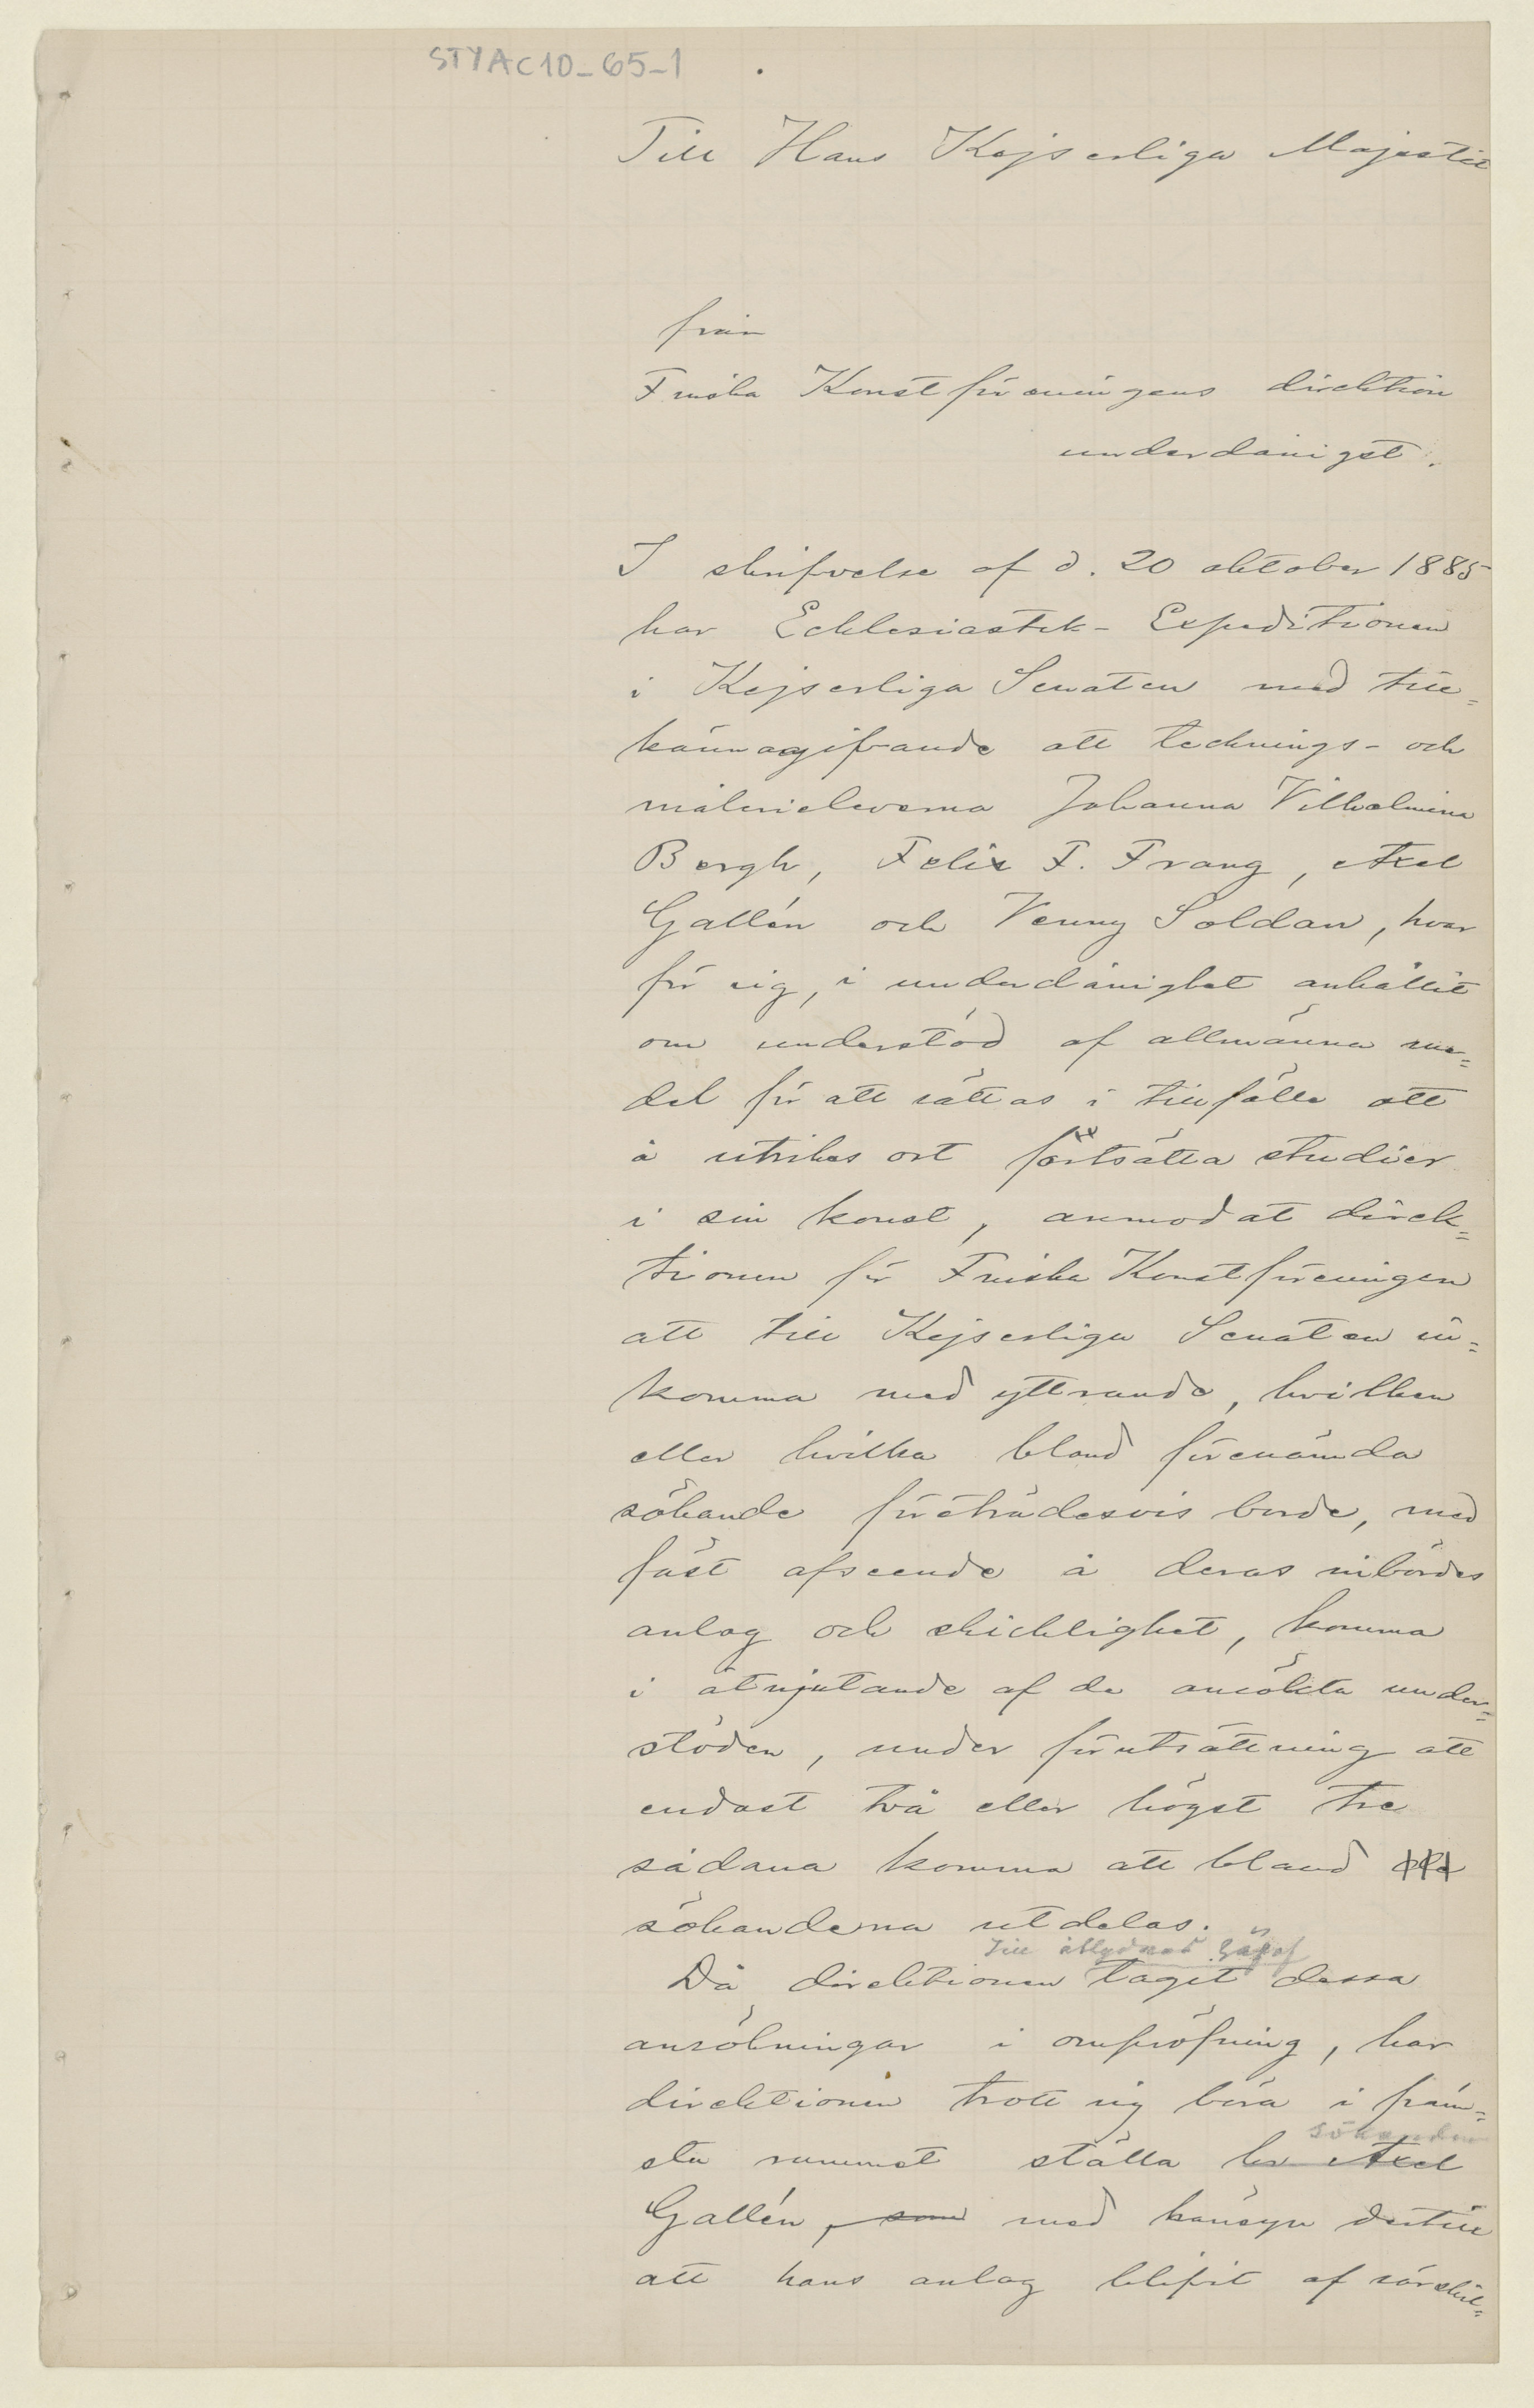 STYAC10-65-1
Till Hans Kejserliga Majestät
från
Finska Konstföreningens direktion
underdånigst.
I skrifvelse af d. 20 oktober 1885
har Ecklesiastik-Expeditionen
i Kejserliga Senaten med till=
kännagifvande att tecknings- och
målerieleverna Johanna Vilhelmina
Bergh, Felix F. Frang, Axel
Gallén och Venny Soldan, hvar
för sig, i underdånighet anhållit
om understöd af allmänna me=
del för att sättas i tillfälle att
å utrikes ort fortsätta studier
i sin konst, anmodat direk=
tionen för Finska Konstföreningen
att till Kejserliga Senaten in=
komma med yttrande, hvilken
eller hvilka bland förenämda
sökande företrädesvis borde, med
fäst afseende å deras inbördes
anlag och skicklighet, komma
i åtnjutande af de ansökta under=
stöden, under förutsättning att
endast två eller högst tre
sådana komma att bland
sökandena utdelas.
till åtlydnad häraf
Då direktionen taget dessa
ansökningar i ompröfning, har
direktionen trott sig böra i främ=
sökanden
sta rummet ställa hr Axel
Gallén, som med hänsyn dertill
att hans anlag blifvit af särskil=